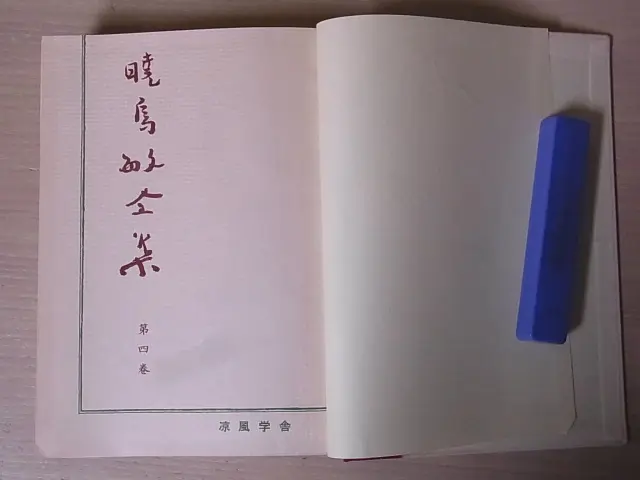 暁烏敏全集
第四巻
涼風学舎